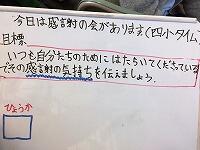 今日は感謝の会があります(四小タイム)
目標
いつも自分たちのために はたらいてくださっている
でその感謝の気持ちを伝えましょう。
ひょうか